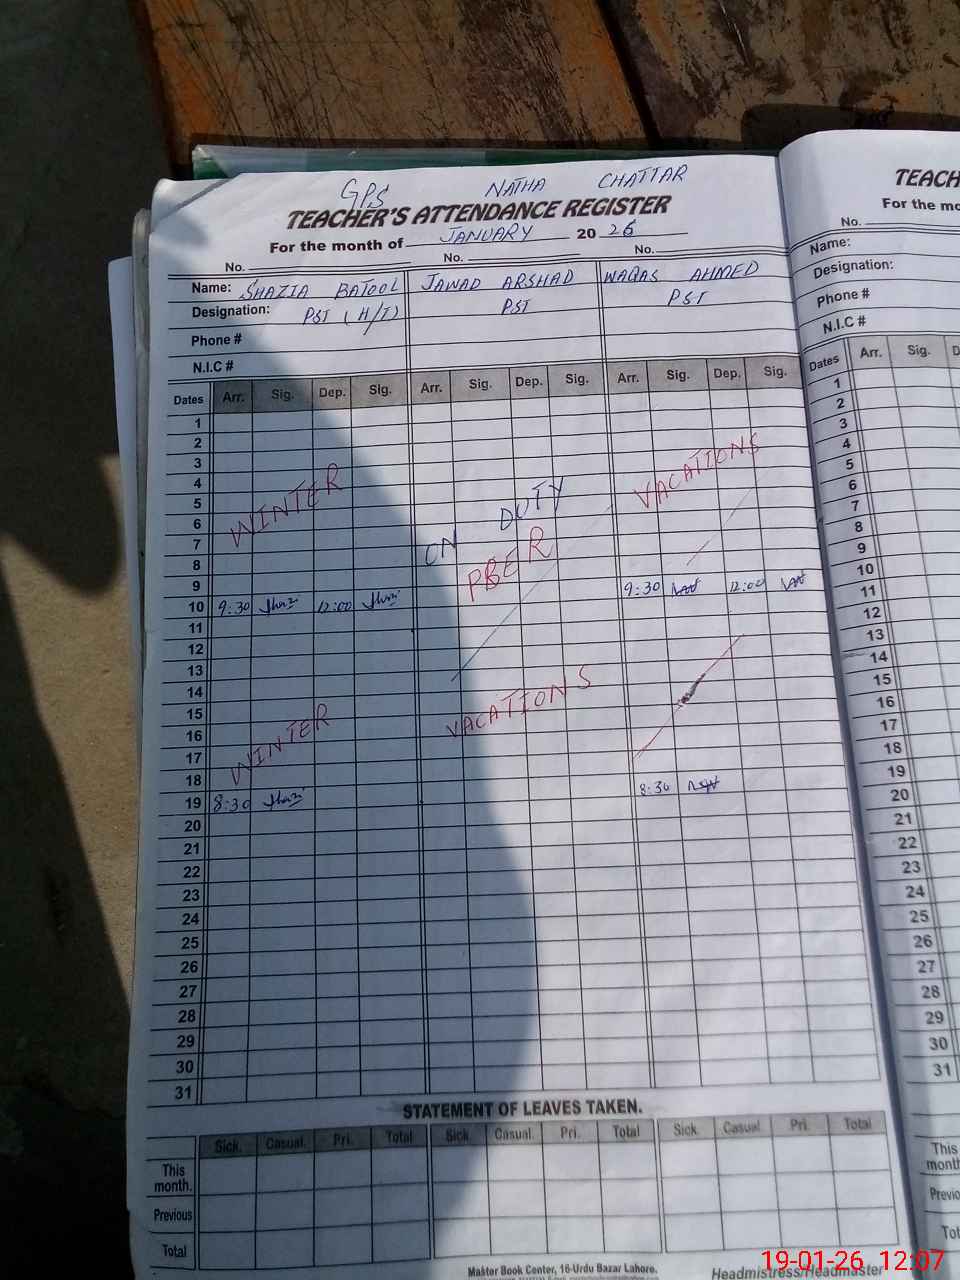 GPS NATHA CHATTAR
TEACHER'S ATTENDANCE REGISTER
For the month of JANUARY 20 26
No. No. No.
Name: SHAZIA BATOOL JAWAD ARSHAD WAQAS AHMED
Designation: PST (H/T) PST PST
Phone #
N.I.C #
Dates Arr. Sig. Dep. Sig. Arr. Sig. Dep. Sig. Arr. Sig. Dep. Sig.
1
2
3
4
5
6
7
8
9
10 9:30 12:00 9:30 12:00
11
12
13
14
15
16
17
18
19 8:30 8:30
20
21
22
23
24
25
26
27
28
29
30
31
WINTER VACATIONS
ON DUTY
PBER
WINTER VACATIONS
STATEMENT OF LEAVES TAKEN.
Sick. Casual. Pri. Total Sick. Casual. Pri. Total Sick. Casual. Pri. Total
This month.
Previous
Total
Master Book Center, 16-Urdu Bazar Lahore.
Headmistress/Headmaster
TEACH
For the mo
No.
Name:
Designation:
Phone #
N.I.C #
Dates Arr. Sig. D
1
2
3
4
5
6
7
8
9
10
11
12
13
14
15
16
17
18
19
20
21
22
23
24
25
26
27
28
29
30
31
This
month
Previo
Tot
19-01-26 12:07